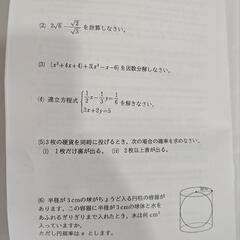 (2) 2√6 − √2/√3 を計算しなさい。
(3) (x²+4x+4)+3(x²−x−6) を因数分解しなさい。
(4) 連立方程式 { 1/2 x − 1/3 y = 1/6
3x+2y=5 を解きなさい。
(5) 3枚の硬貨を同時に投げるとき，次の場合の確率を求めなさい。
(i) 1枚だけ裏が出る。 (ii) 2枚以上表が出る。
(6) 半径が3cmの球がちょうど入る円柱の容器が
あります。この容器に半径が3cmの球と水を
あふれるぎりぎりまで入れたとき，水は何cm³
入っていますか。
ただし円周率はπとします。